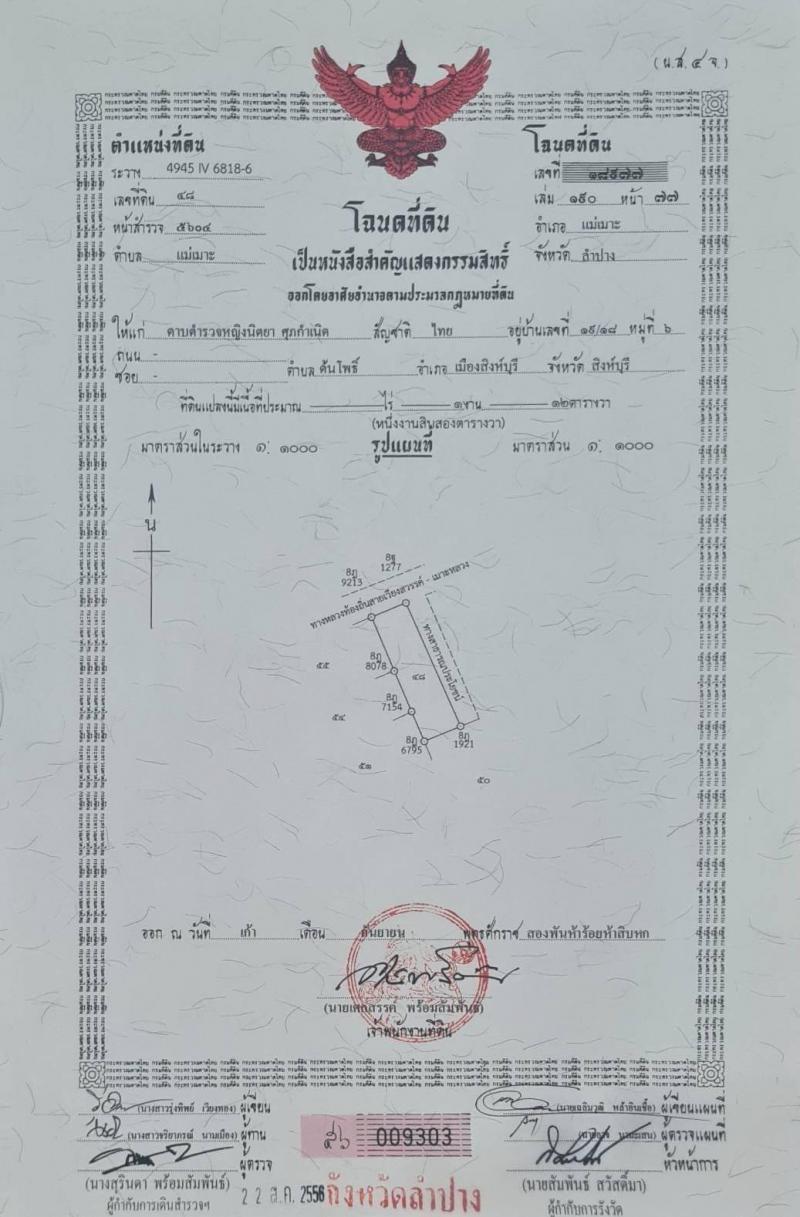 (น.ส. ๔ จ.)
ตำแหน่งที่ดิน
ระวาง 4945 IV 6818-6
เลขที่ดิน ๔๘
หน้าสำรวจ ๕๖๐๔
ตำบล แม่เมาะ
โฉนดที่ดิน
เลขที่ ๑๘๙๗๗
เล่ม ๑๙๐ หน้า ๗๗
อำเภอ แม่เมาะ
จังหวัด ลำปาง
โฉนดที่ดิน
เป็นหนังสือสำคัญแสดงกรรมสิทธิ์
ออกโดยอาศัยอำนาจตามประมวลกฎหมายที่ดิน
ให้แก่ ดาบตำรวจหญิงนิตยา ศุภกำเนิด สัญชาติ ไทย อยู่บ้านเลขที่ ๑๙/๑๘ หมู่ที่ ๖
ถนน -
ซอย - ตำบล ต้นโพธิ์ อำเภอ เมืองสิงห์บุรี จังหวัด สิงห์บุรี
ที่ดินแปลงนี้มีเนื้อที่ประมาณ ไร่ ๑งาน ๑๒ตารางวา
(หนึ่งงานสิบสองตารางวา)
มาตราส่วนในระวาง ๑: ๑๐๐๐ รูปแผนที่ มาตราส่วน ๑: ๑๐๐๐
น
8ฐ
1277
8ฦ
9213
ทางหลวงท้องถิ่นสายเวียงสวรรค์ - เมาะหลวง
ทางสาธารณประโยชน์
๕๕
8ฦ
8078
๔๘
8ฦ
7154
๕๔
8ฦ
6795
8ฦ
1921
๕๑
๕๐
ออก ณ วันที่ เก้า เดือน กันยายน พุทธศักราช สองพันห้าร้อยห้าสิบหก
(นายเทอดสรรค์ พร้อมสัมพันธ์)
เจ้าพนักงานที่ดิน
(นางสาวรุ่งทิพย์ เวียงทอง) ผู้เขียน
(นางสาวจริยาภรณ์ นามเมือง) ผู้ทาน
ผู้ตรวจ
(นางสุรินดา พร้อมสัมพันธ์)
ผู้กำกับการเดินสำรวจฯ
009303
22 ส.ค. 2556
จังหวัดลำปาง
ผู้เขียนแผนที่
ผู้ตรวจแผนที่
หัวหน้าการ
(นายสัมพันธ์ สวัสดิ์มา)
ผู้กำกับการรังวัด